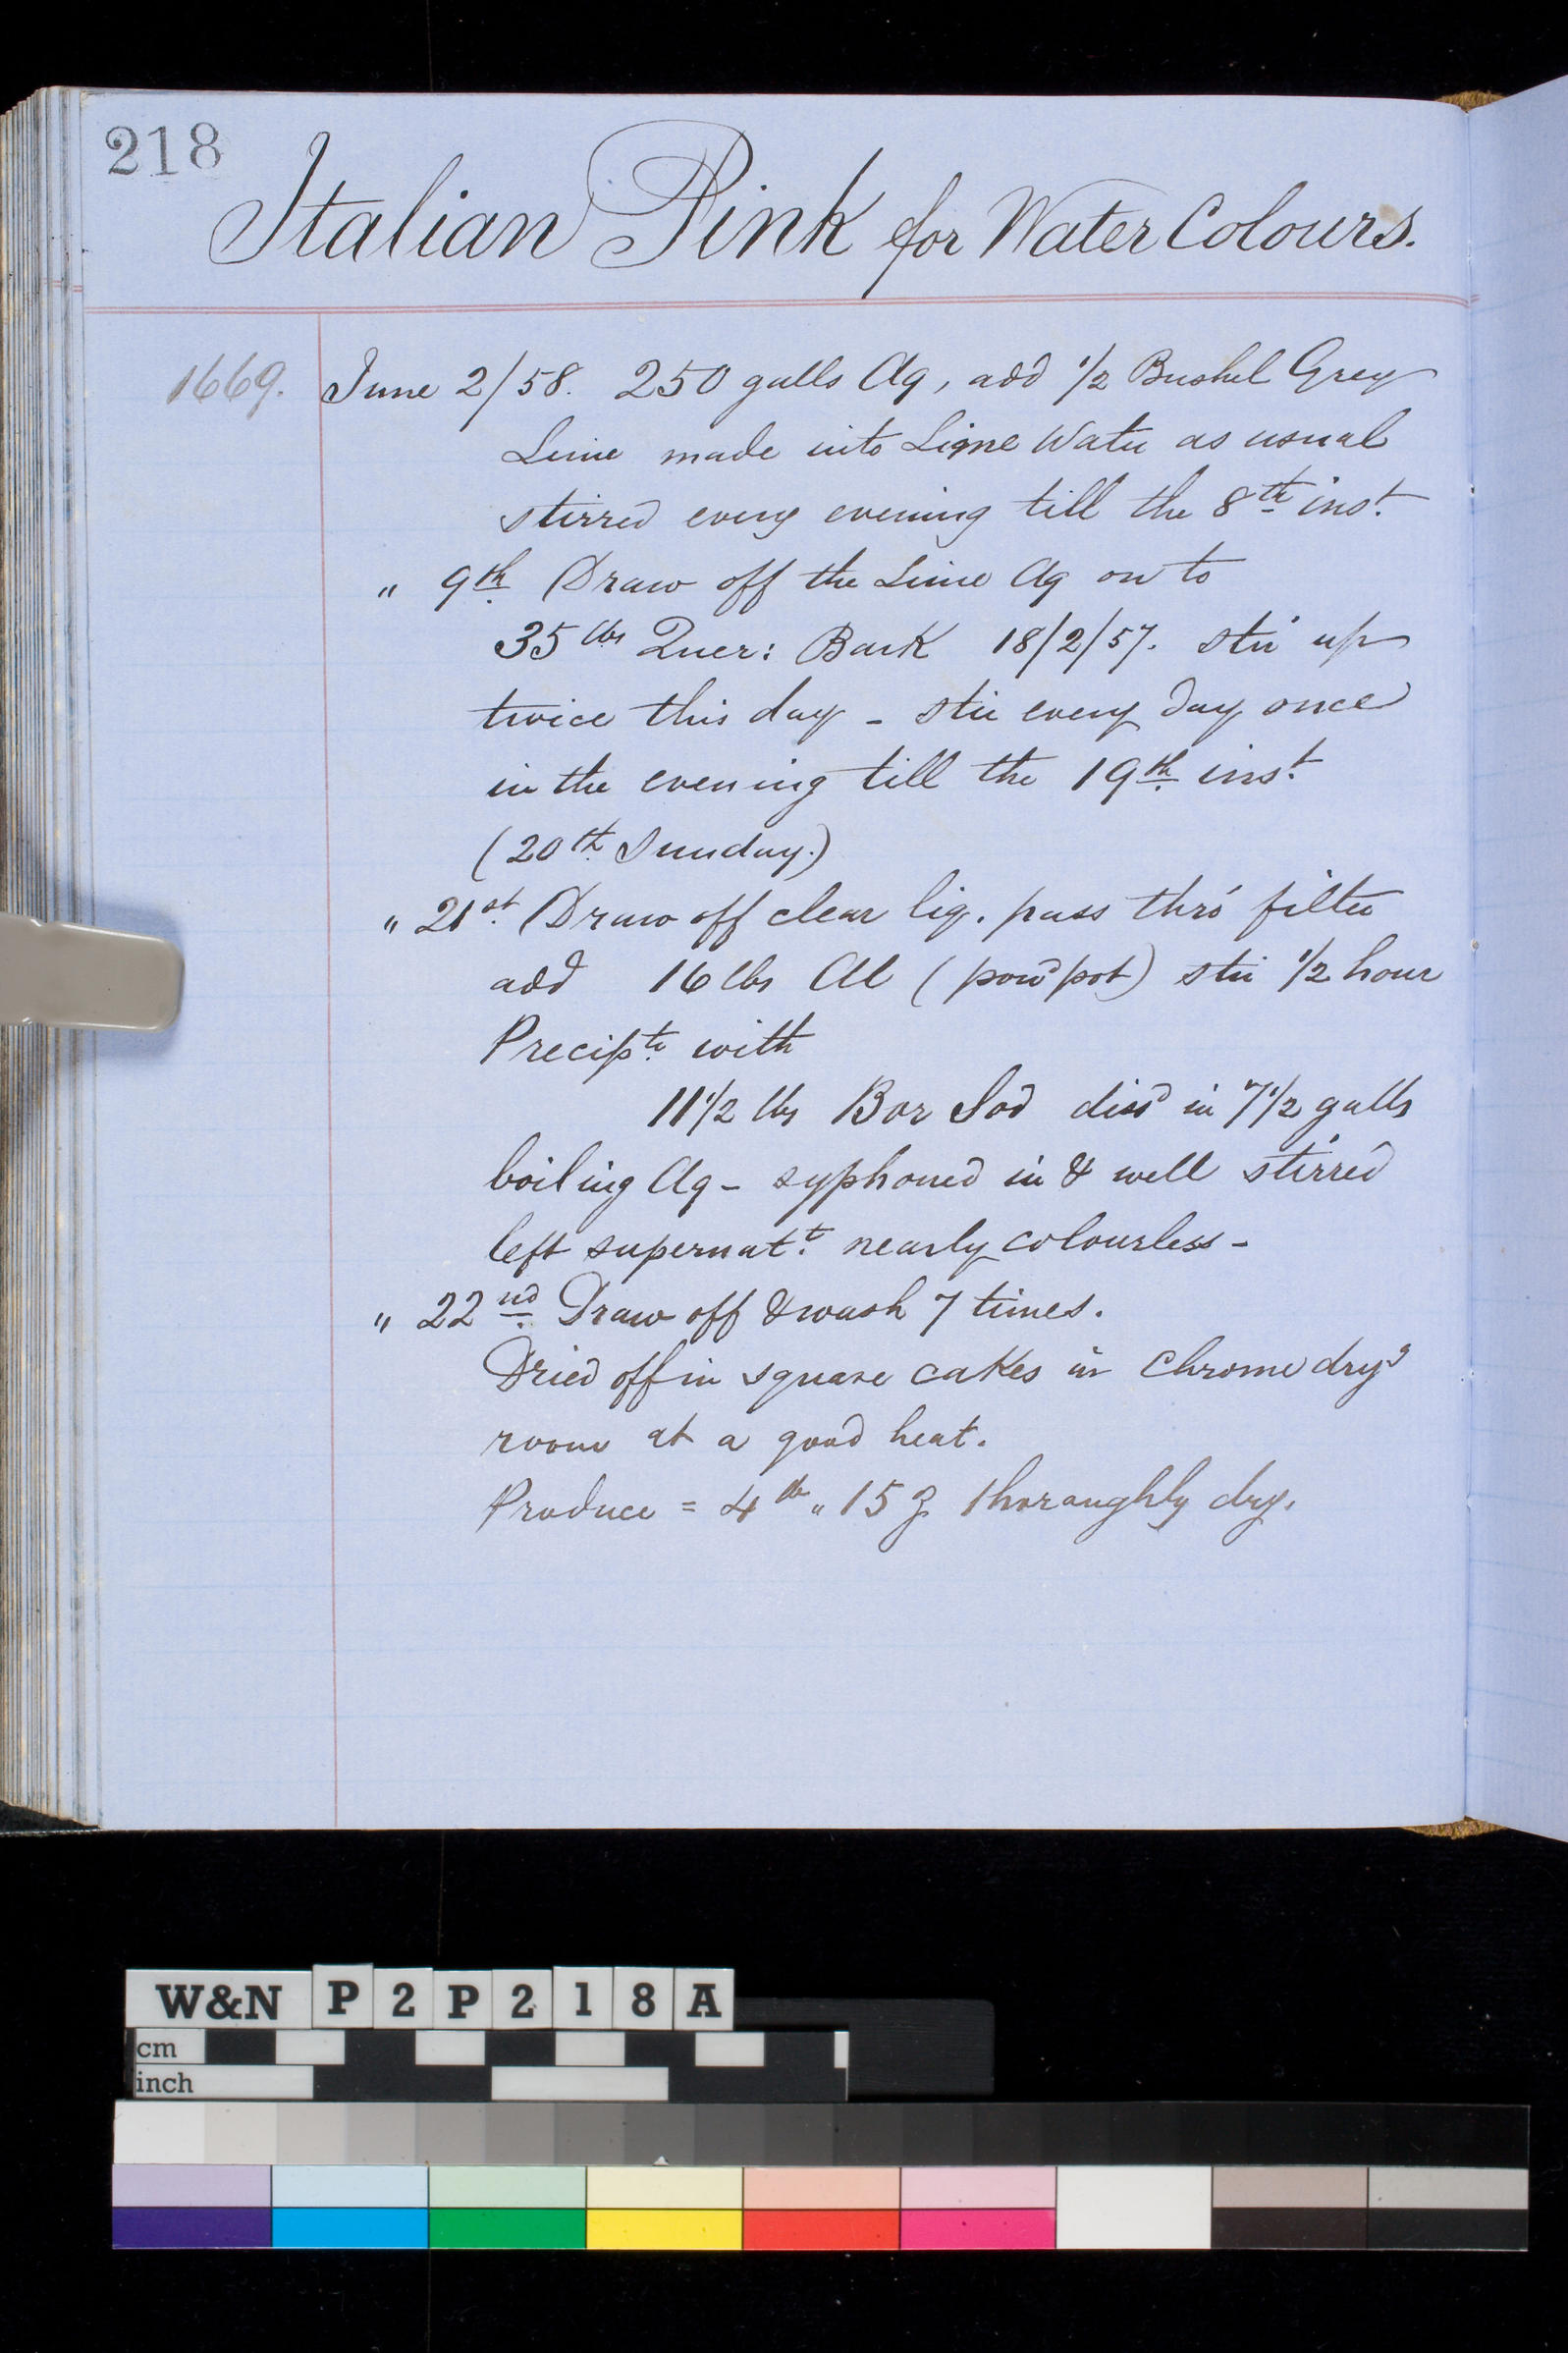 218
Italian Pink for Water Colours.
1669. June 2/58. 250 galls Aq, add 1/2 Bushel Grey
Lime made into Lime Water as usual
stirred every evening till the 8th inst.
" 9th Draw off the Lime Aq on to
35 lbs Quer: Bark 18/2/57. stir up
twice this day - stir every day once
in the evening till the 19th inst
(20th Sunday.)
" 21st Draw off clear liq. pass thro' filter
add 16 lbs Al (powd pot) stir 1/2 hour
Precipte with
11 1/2 lbs Bor Sod dissd in 7 1/2 galls
boiling Aq - syphoned in & well stirred
left supernatt. nearly colourless -
" 22nd Draw off & wash 7 times.
Dried off in square cakes in Chrome dryg
room at a good heat.
Produce = 4 lb " 15 ℥ thoroughly dry.
W&N P2P218A
cm
inch